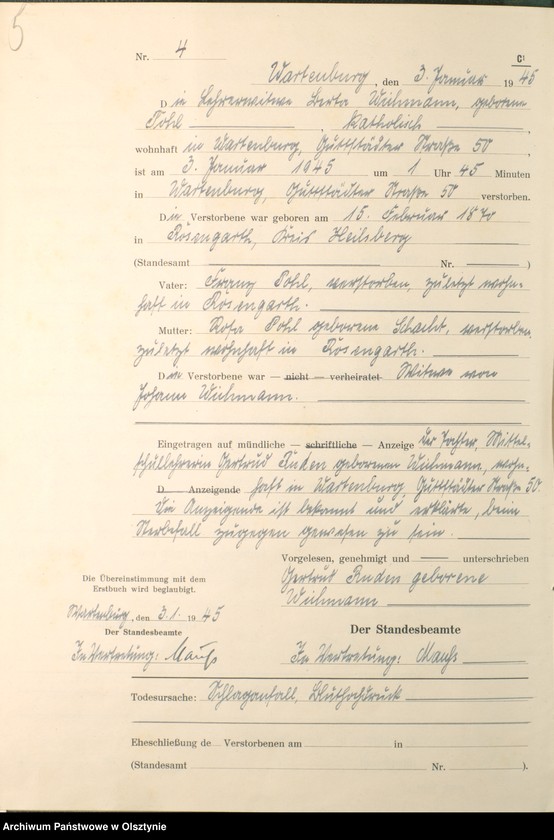 5
Nr. 4
C1
Wartenburg, den 3. Januar 1945
Die Lehrerwitwe Berta Wichmann, geborene
Pohl, katholisch,
wohnhaft in Wartenburg, Guttstädter Straße 50,
ist am 3. Januar 1945 um 1 Uhr 45 Minuten
in Wartenburg, Guttstädter Straße 50 verstorben.
Die Verstorbene war geboren am 15. Februar 1870
in Rosengarth, Kreis Heilsberg
(Standesamt Nr. )
Vater: Franz Pohl, verstorben, zuletzt wohn-
haft in Rosengarth.
Mutter: Rosa Pohl geborene Schacht, verstorben
zuletzt wohnhaft in Rosengarth.
Die Verstorbene war — nicht — verheiratet Witwe von
Johann Wichmann.
Eingetragen auf mündliche — schriftliche — Anzeige der Tochter, Mittel-
schullehrerin Gertrud Ruden geborenen Wichmann, wohn-
D Anzeigende haft in Wartenburg, Guttstädter Straße 50.
Die Anzeigende ist bekannt und erklärte, beim
Sterbefall zugegen gewesen zu sein.
Vorgelesen, genehmigt und unterschrieben
Gertrud Ruden geborene
Wichmann
Die Übereinstimmung mit dem
Erstbuch wird beglaubigt.
Wartenburg, den 3.1. 1945
Der Standesbeamte
In Vertretung:
Der Standesbeamte
In Vertretung:
Todesursache: Schlaganfall, Bluthochdruck
Eheschließung de Verstorbenen am in
(Standesamt Nr. ).
Archiwum Państwowe w Olsztynie